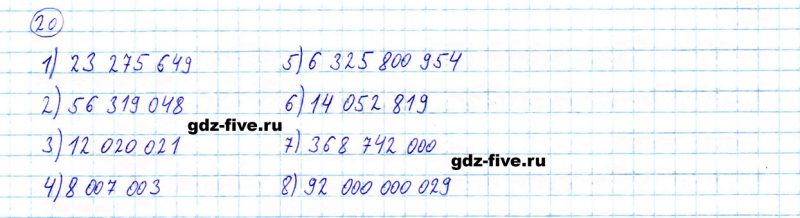 20
1) 23 275 649 5) 6 325 800 954
2) 56 319 048 6) 14 052 819
gdz-five.ru
3) 12 020 021 7) 368 742 000
gdz-five.ru
4) 8 007 003 8) 92 000 000 029